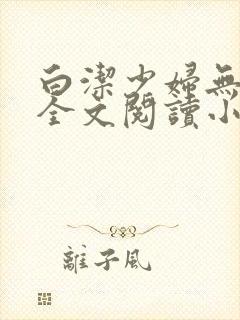 白潔少婦無
全文閱讀小
離子風